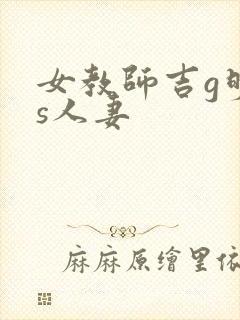 女教師吉g
s人妻
麻麻原繪里依